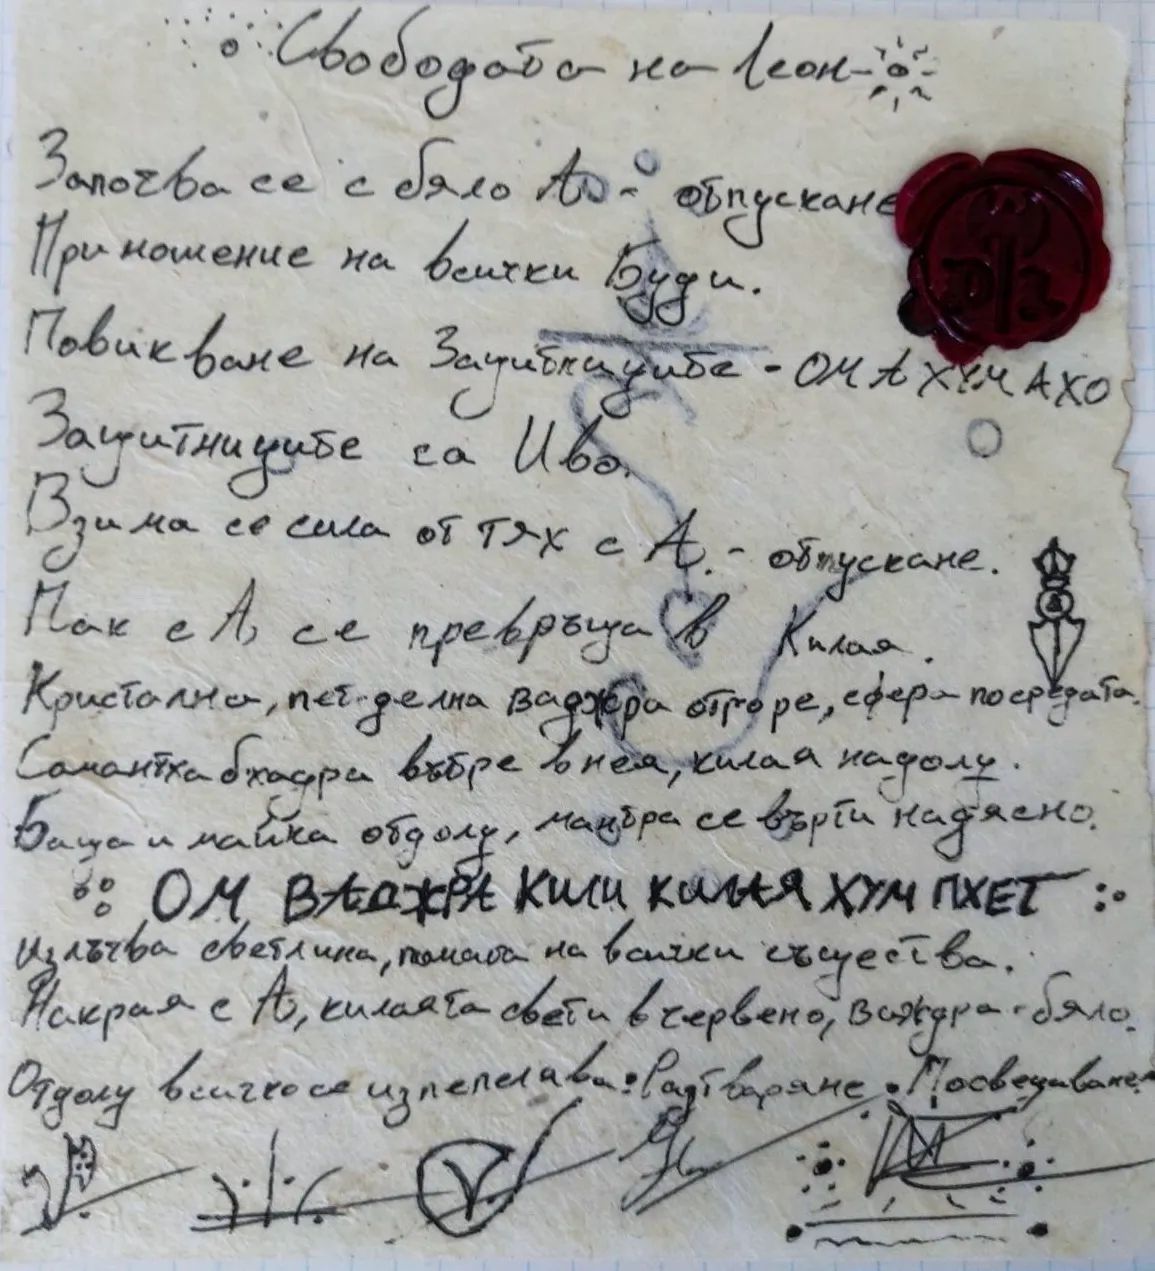 Свободата на Леон
Започва се с бяло А - отпускане
Приношение на всички Буди.
Повикване на Защитниците - ОМ А ХУМ А ХО
Защитниците са Иво.
Взима се сила от тях с А. - отпускане.
Пак с А, се превръща в Килая.
Кристална, пет-делна ваджра отгоре, сфера посредата.
Самантхабхадра вътре в нея, килая надолу.
Баща и майка отдолу, мантра се върти надясно.
ОМ ВАДЖРА КИЛИ КИЛАЯ ХУМ ПХЕТ
Излъчва светлина, помага на всички същества.
Накрая с А, килаята свети в червено, ваджра - бяло.
Отдолу всичко се изпепелява. Разтваряне. Посвещаване.